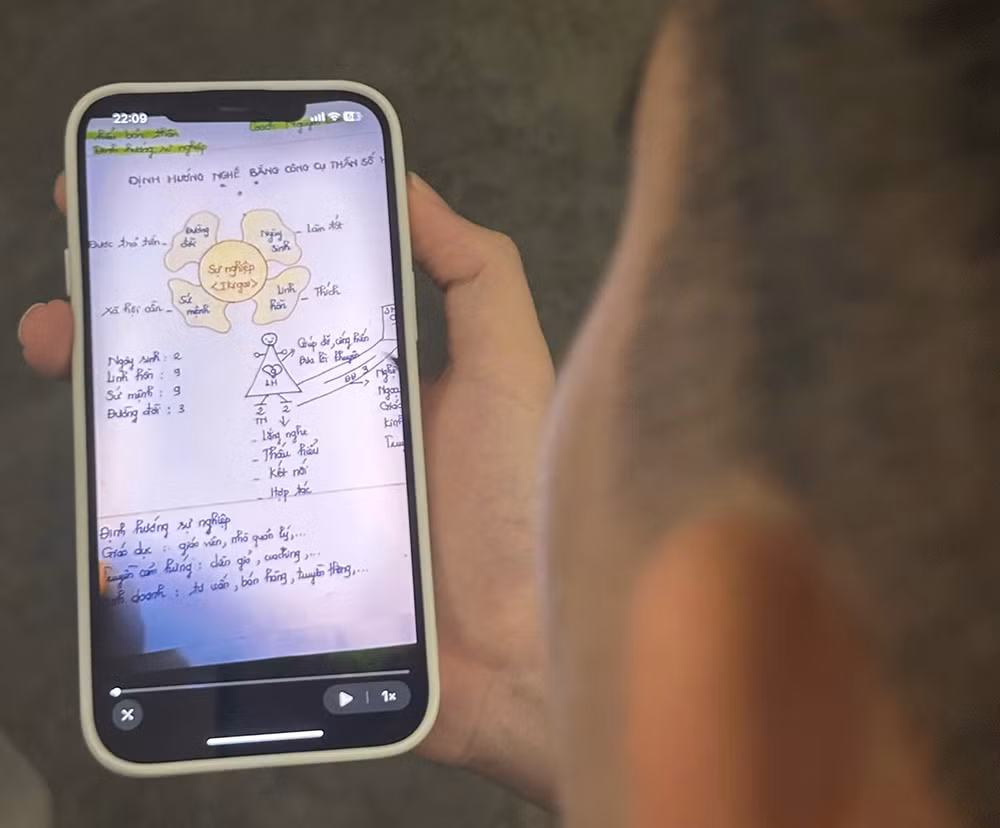 22:09
hiểu bản thân
Định hướng sự nghiệp
ĐỊNH HƯỚNG NGHỀ BẰNG CÔNG CỤ THẦN SỐ H
Đường đời
Ngày sinh
Làm tốt
Được trả tiền
Sự nghiệp
<Ikigai>
Sứ mệnh
Linh hồn
Thích
Xã hội cần
Giúp đỡ, cống hiến
Ngày sinh : 2
Linh hồn : 9
Sứ mệnh : 9
Đường đời : 3
LH
ĐĐ 3
2 2
- Lắng nghe
- Thấu hiểu
- Kết nối
- Hợp tác
Định hướng sự nghiệp
Giáo dục : giáo viên, nhà quản lý,...
Truyền cảm hứng : diễn giả, coaching,...
doanh : tư vấn, bán hàng, truyền thông,...
1x